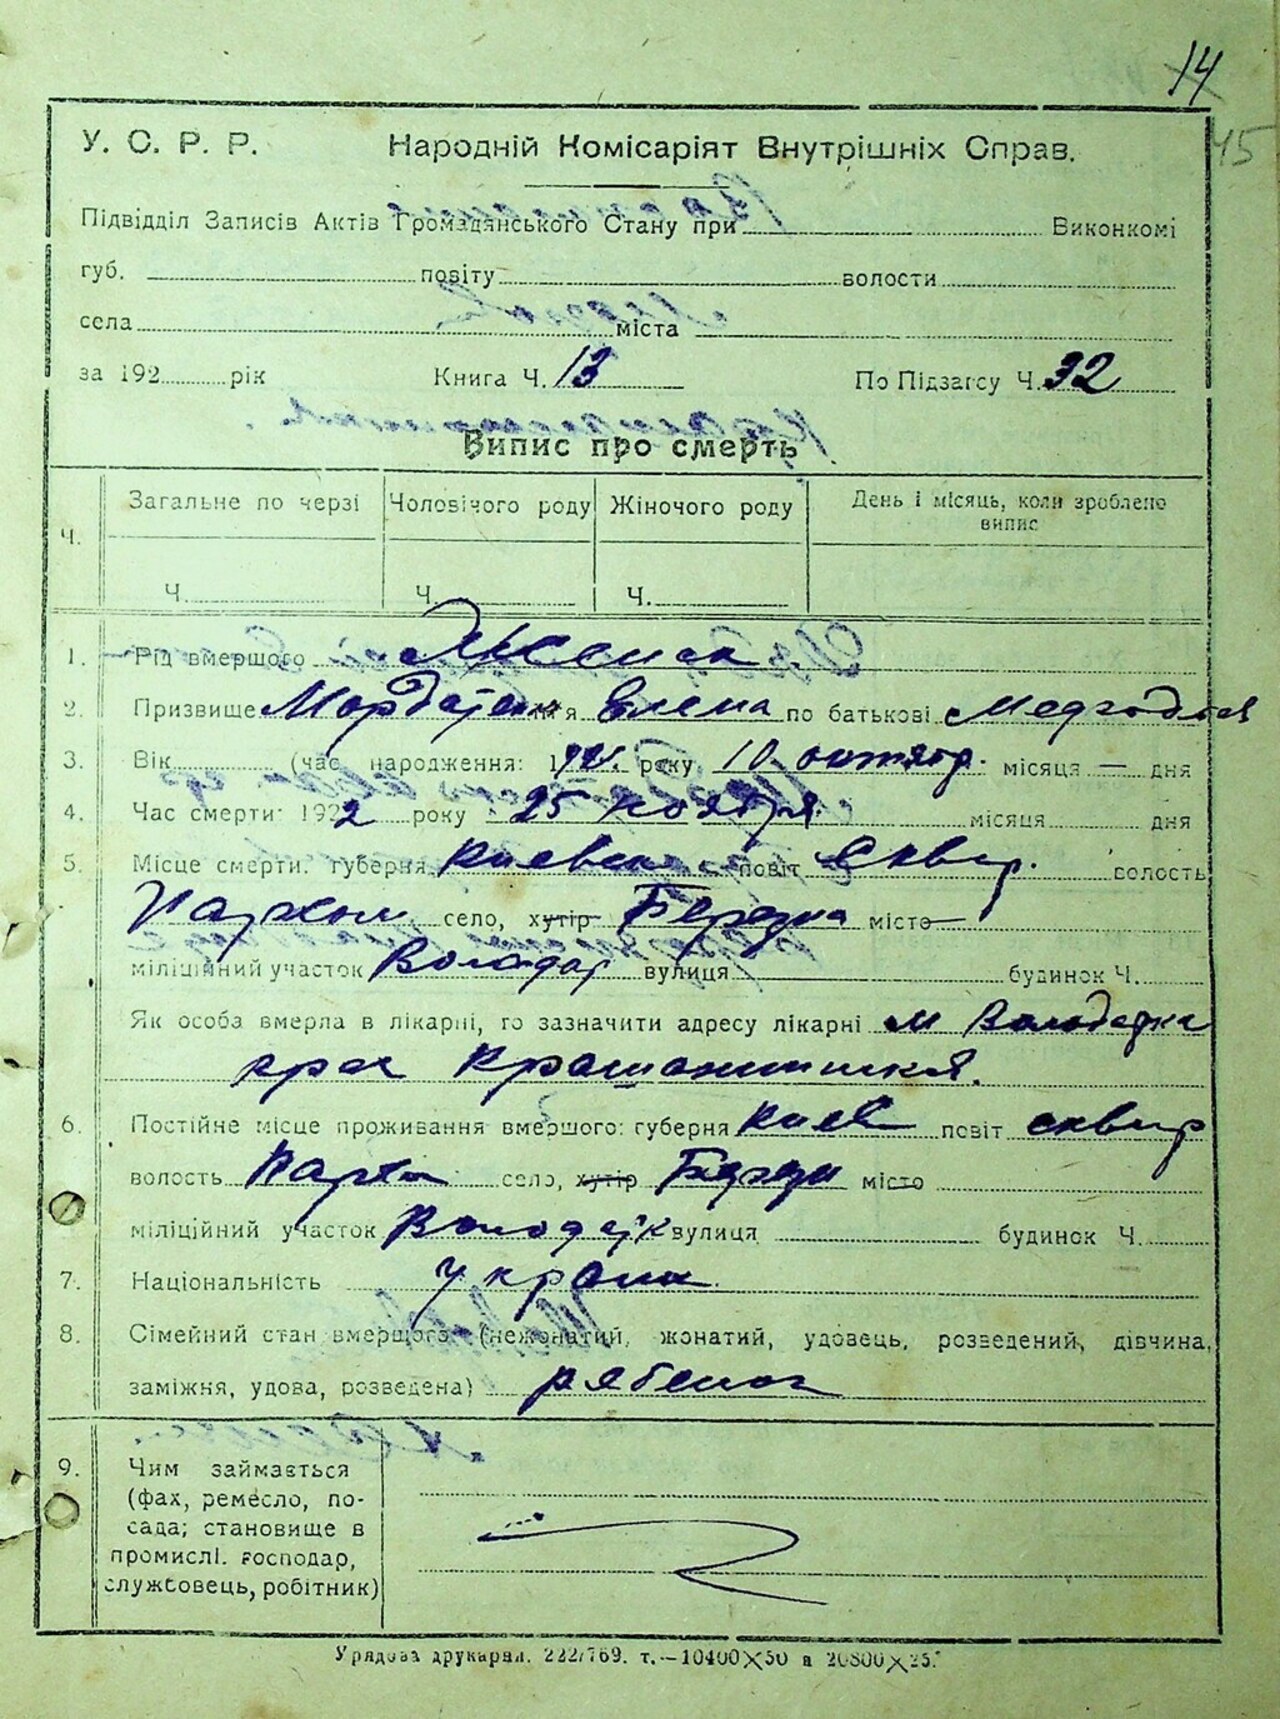 14
45
У. С. Р. Р. Народній Комісаріят Внутрішніх Справ.
Підвідділ Записів Актів Громадянського Стану при Виконкомі
губ. повіту волости
села міста
за 192 рік Книга Ч. 13 По Підзагсу Ч. 32
Випис про смерть
Ч. Загальне по черзі Чоловічого роду Жіночого роду День і місяць, коли зроблено випис
Ч. Ч. Ч.
1. Рід вмершого Женск
2. Призвище ім'я Елена по батькові
3. Вік (час народження: 1921 року 10 октябр. місяця — дня
4. Час смерти: 1922 року 25 ноября місяця дня
5. Місце смерти. губерня Киевск повіт Сквир. волость
Пархом село, хутір Березна місто
міліційний участок Володар вулиця будинок Ч.
Як особа вмерла в лікарні, то зазначити адресу лікарні м Володарка
врач
6. Постійне місце проживання вмершого: губерня Киев повіт сквир
волость Пархо село, хутір Берез місто
міліційний участок Володарк вулиця будинок Ч.
7. Національність украин
8. Сімейний стан вмершого (нежонатий, жонатий, удовець, розведений, дівчина,
заміжня, удова, розведена) рябенок
9. Чим займається
(фах, ремесло, по-
сада; становище в
промислі. господар,
службовець, робітник)
Урядова друкарня. 222/769. т.—10400×50 а 20800×25.